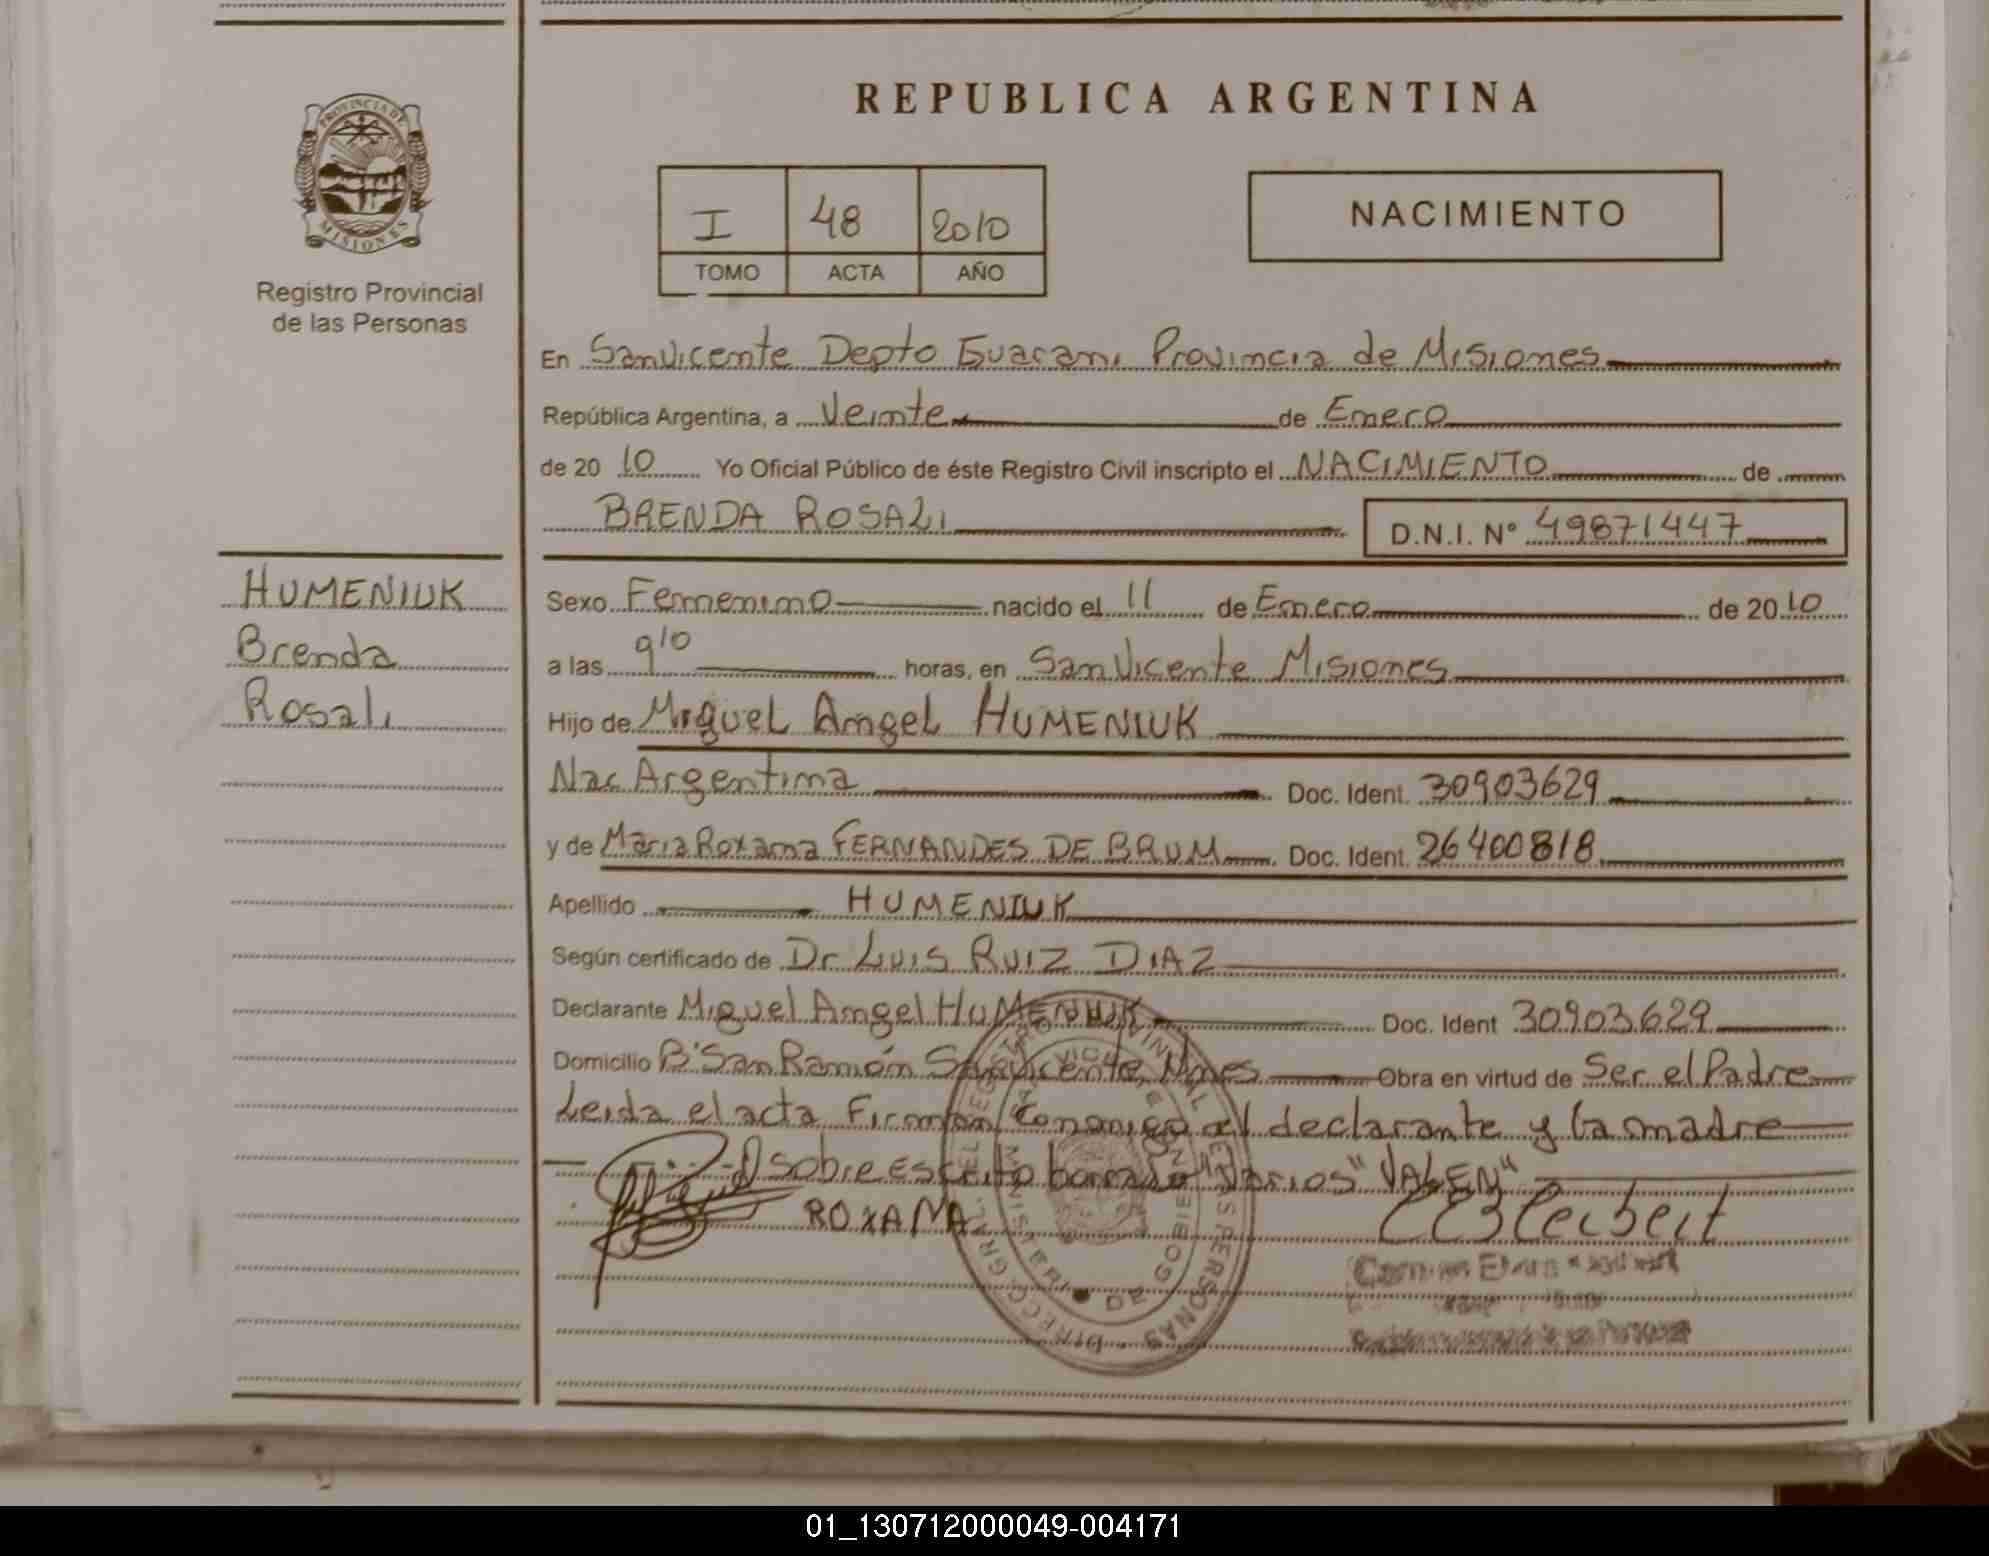 REPUBLICA ARGENTINA
PROVINCIA DE MISIONES
Registro Provincial
de las Personas
I 48 2010
TOMO ACTA AÑO
NACIMIENTO
En San Vicente Depto Guarani Provincia de Misiones
República Argentina, a Veinte de Enero
de 20 10 Yo Oficial Público de éste Registro Civil inscripto el NACIMIENTO de
BRENDA ROSALI D.N.I. Nº 49871447
HUMENIUK
Brenda
Rosali
Sexo Femenino nacido el 11 de Enero de 20 10
a las 9 10 horas, en San Vicente Misiones
Hijo de Miguel Angel HUMENIUK
Nac Argentina Doc. Ident. 30903629
y de Maria Roxana FERNANDES DE BRUM Doc. Ident. 26400818
Apellido HUMENIUK
Según certificado de Dr LUIS RUIZ DIAZ
Declarante Miguel Angel HUMENIUK Doc. Ident 30903629
Domicilio Bº San Ramón San Vicente, Mnes Obra en virtud de Ser el Padre
Leida el acta Firman Conmigo el declarante y la madre
sobre escrito borrado "Varios" VALEN"
ROXANA
DE GOBIERNO
01_130712000049-004171